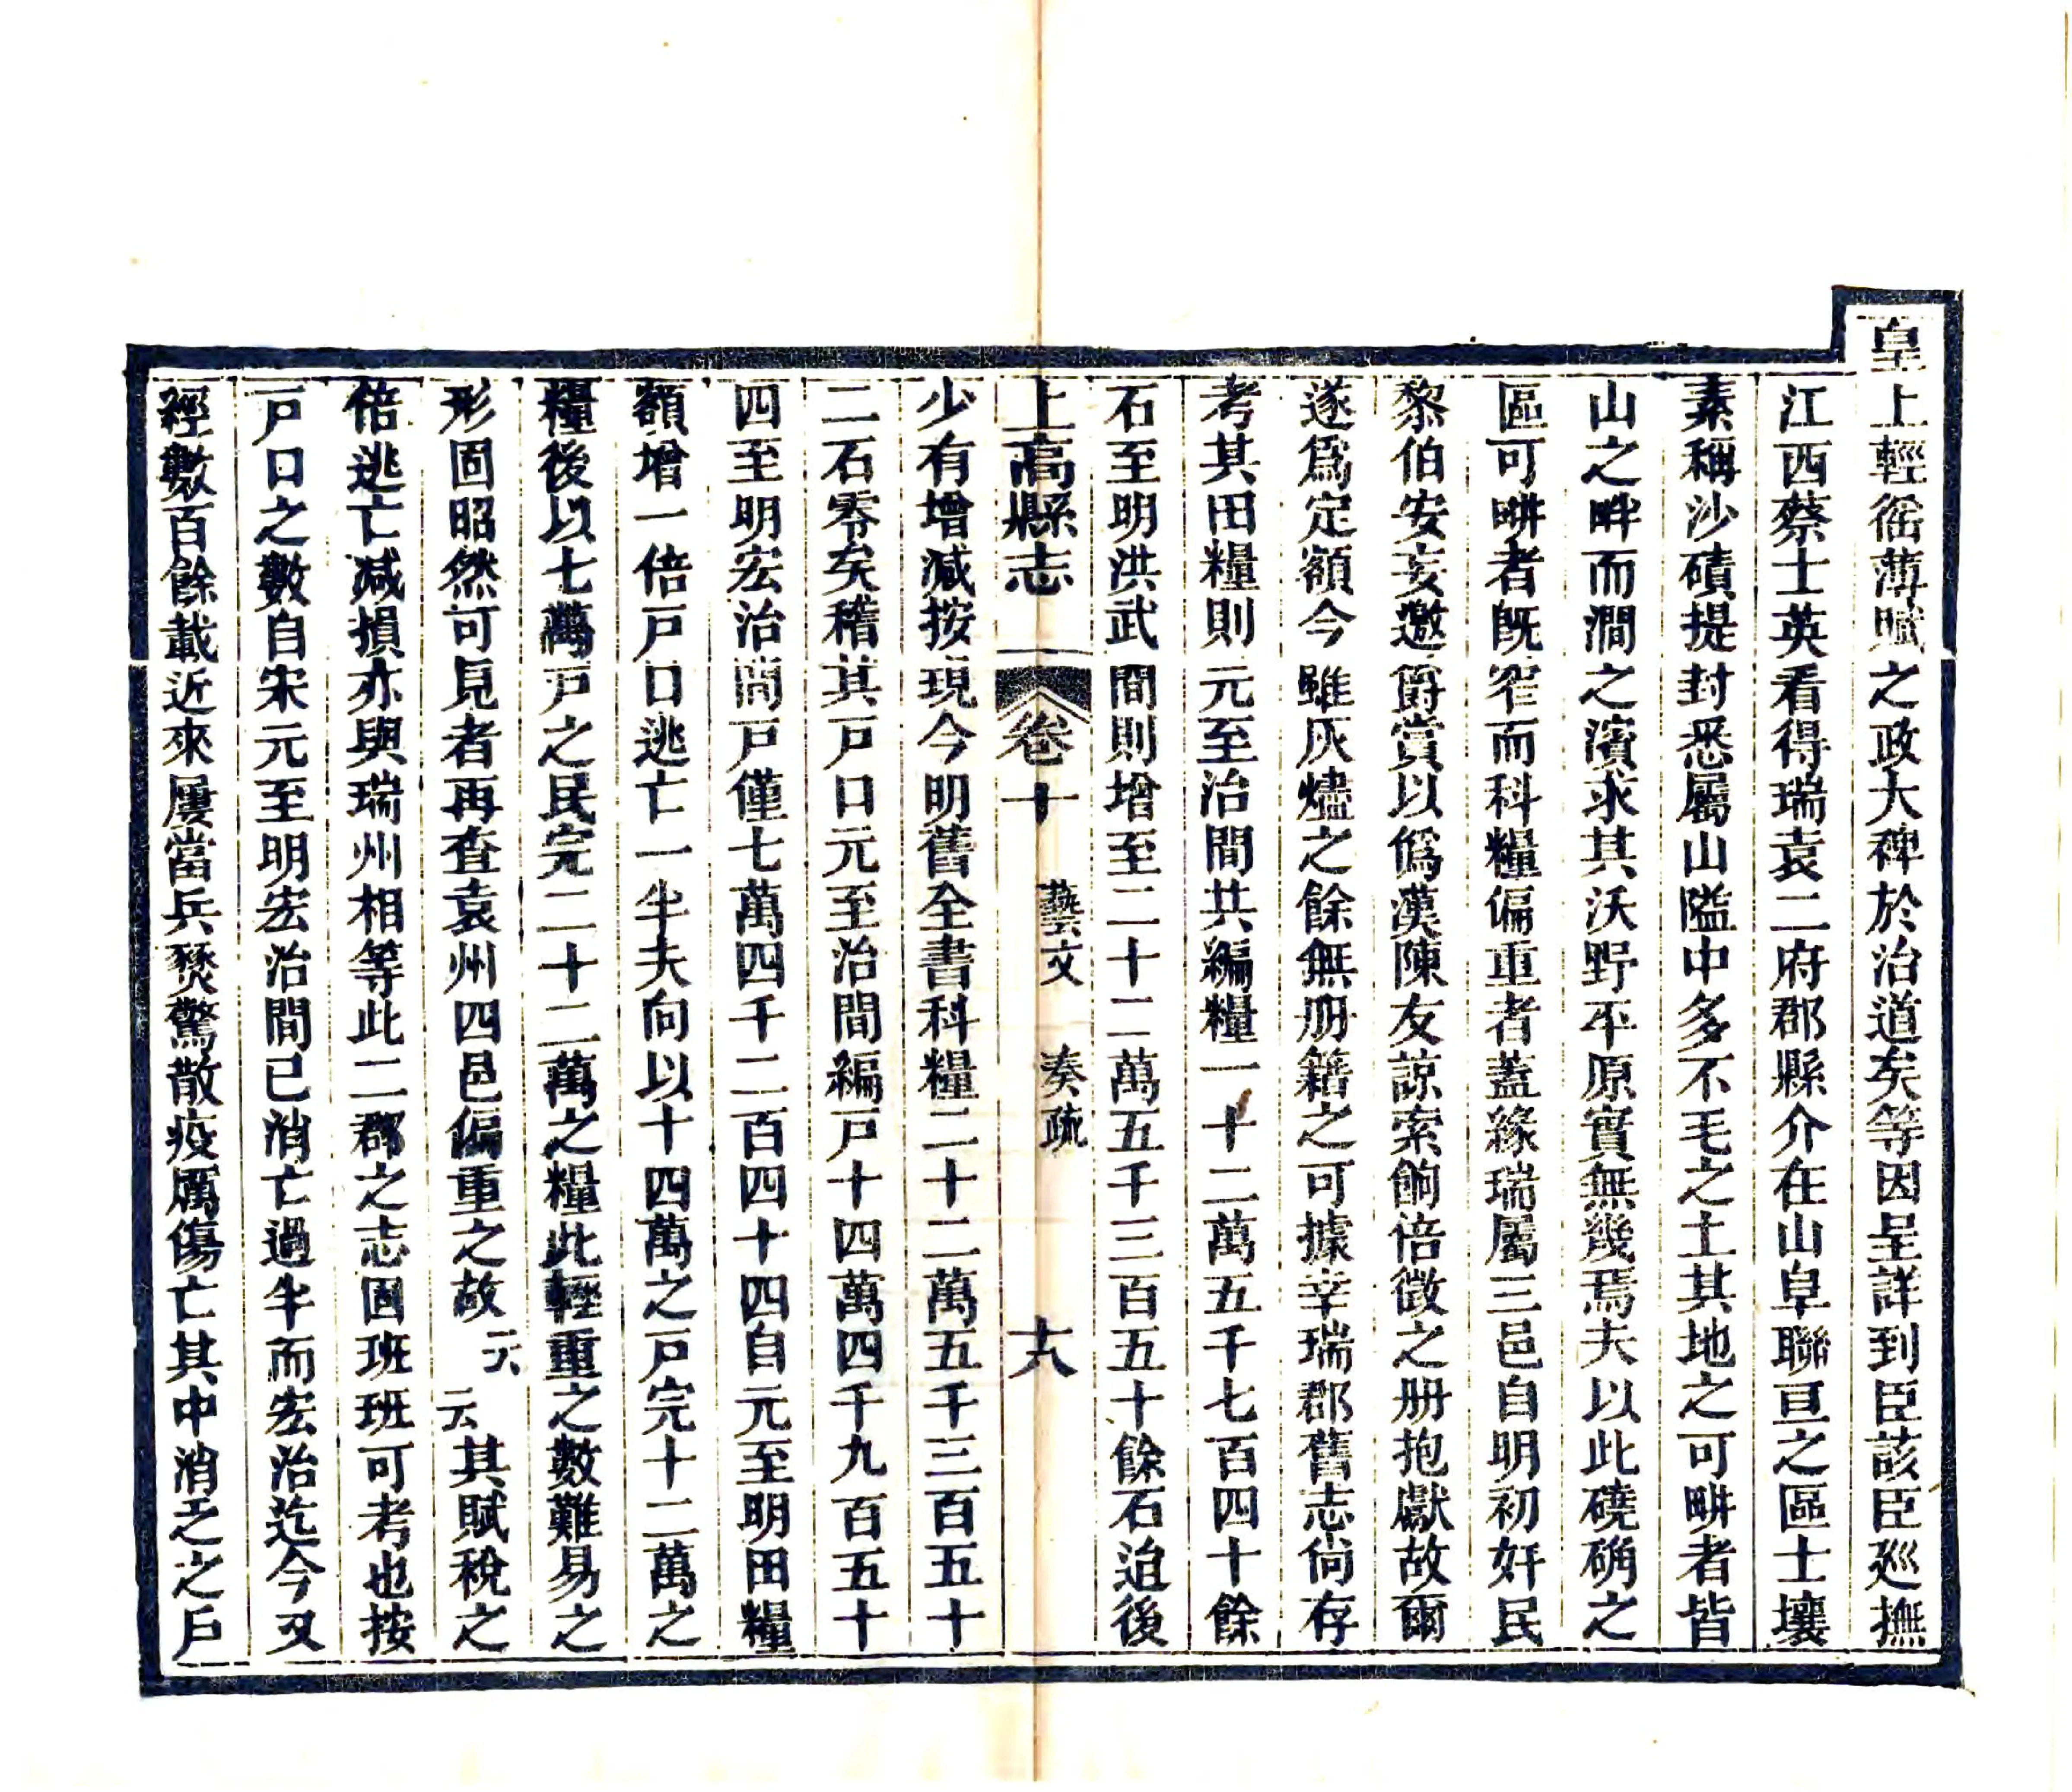 皇上輕徭薄賦之政大裨於治道矣等因呈詳到臣該臣廵撫
江西蔡士英看得瑞袁二府郡縣介在山阜聯亘之區士壤
素稱沙磧提封悉屬山隘中多不毛之土其地之可畊者皆
山之畔而澗之濱求其沃野平原實無幾焉夫以此磽确之
區可畊者旣窄而科糧偏重者蓋緣瑞屬三邑自明初奸民
黎伯安妄邀爵賞以僞漢陳友諒索餉倍徵之册抱獻故爾
遂爲定額今雖灰燼之餘無册籍之可據幸瑞郡舊志尙存
考其田糧則元至治間共編糧一十二萬五千七百四十餘
石至明洪武間則增至二十二萬五千三百五十餘石迨後
上高縣志 卷十 藝文 奏疏 十八
少有增减按現今明舊全書科糧二十二萬五千三百五十
二石零矣稽其戸口元至治間編戸十四萬四千九百五十
四至明宏治間戸僅七萬四千二百四十四自元至明田糧
額增一倍戸口逃亡一半夫向以十四萬之戸完十二萬之
糧後以七萬戸之民完二十二萬之糧此輕重之數難易之
形固昭然可見者再查袁州四邑偏重之故云云其賦稅之
倍逃亡减損亦與瑞州相等此二郡之志固班班可考也按
戸口之數自宋元至明宏治間已消亡過半而宏治迄今又
經數百餘載近來屢當兵燹驚散疫厲傷亡其中消乏之戶